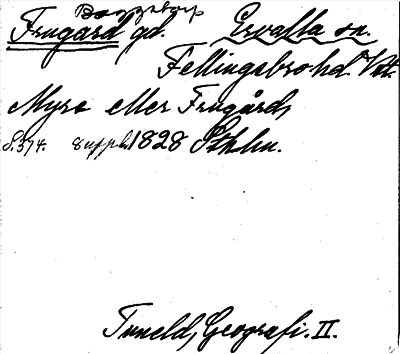 Boggetorp
Frugård gd. Ervalla sn.
Fellingsbro hd. Vstm.
Myra eller Frugård,
S. 374. uppl. 1828 Sthlm.
Tuneld, Geografi. II.